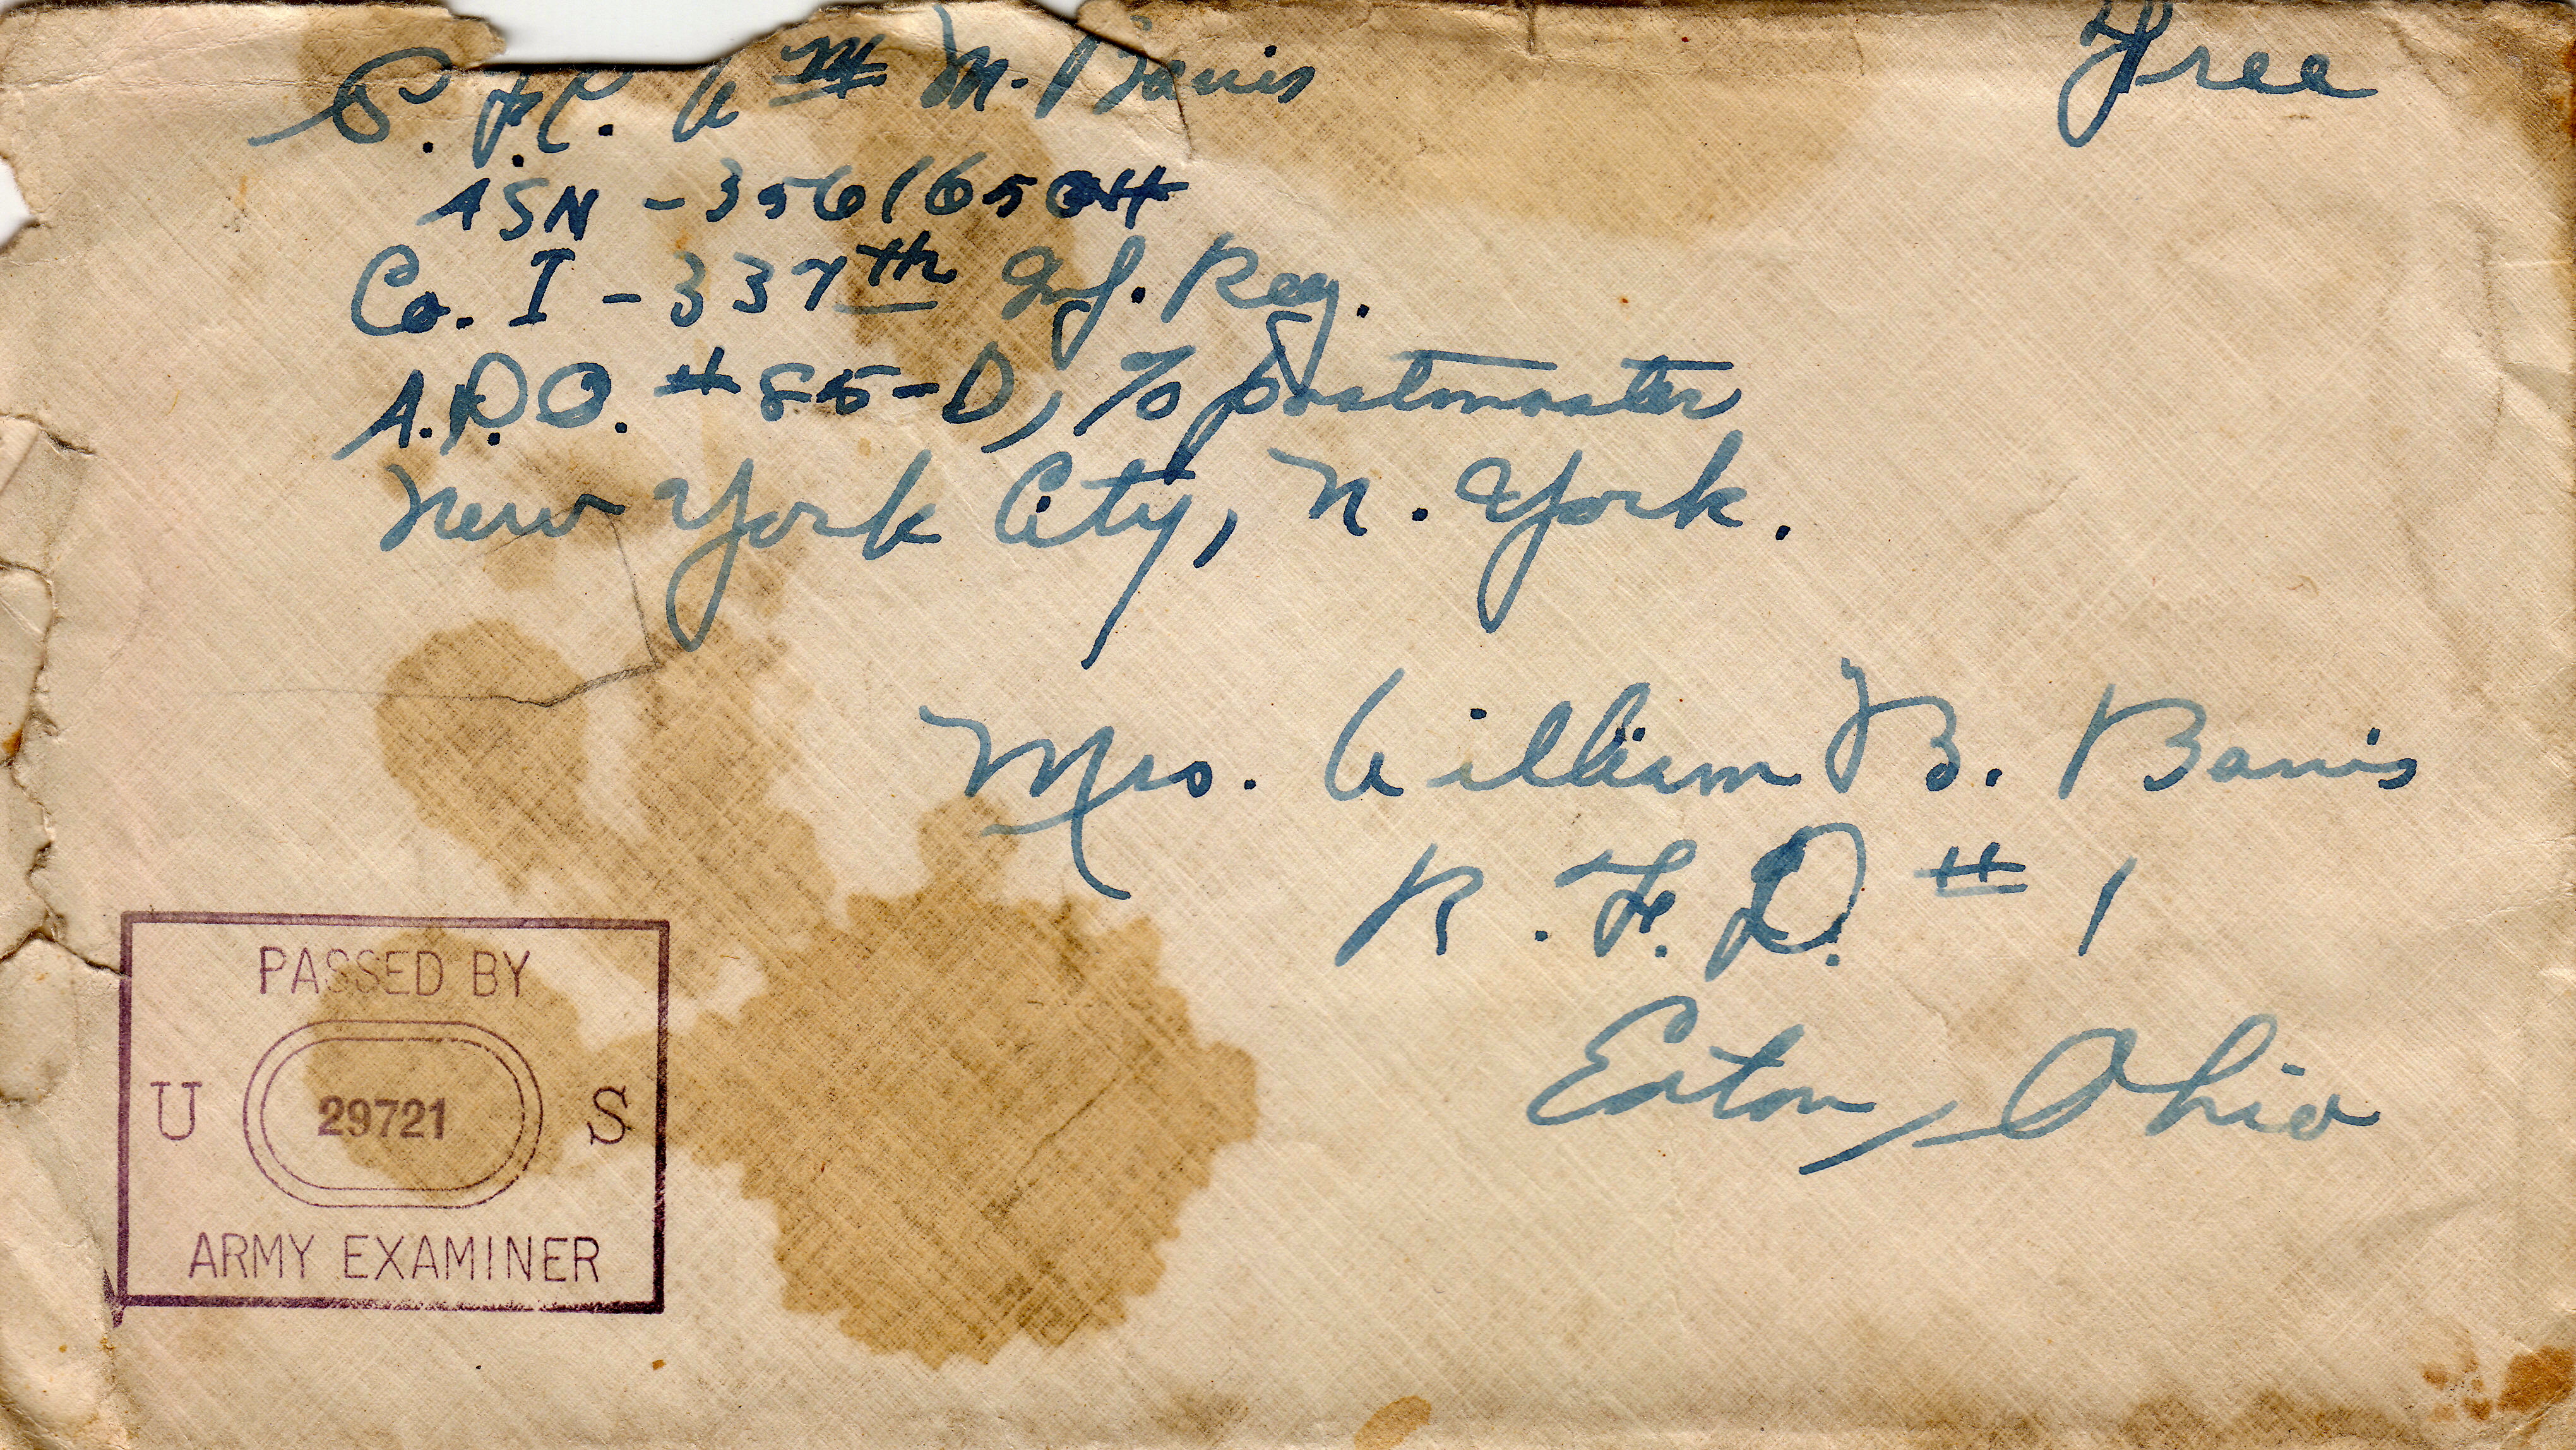 P.F.C. Wm M. Banis
Free
ASN - 35616504
Co. I - 337th Inf. Reg.
A.P.O. #85-D, % Postmaster
New York City, N. York.
Mrs. William B. Banis
R.F.D. # 1
Eaton, Ohio
PASSED BY
U 29721 S
ARMY EXAMINER